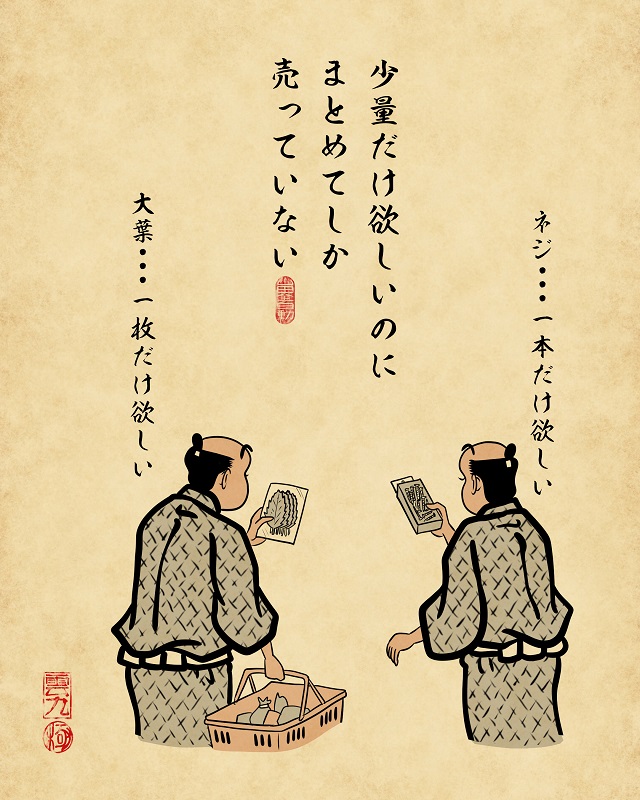 少量だけ欲しいのに
まとめてしか
売っていない
ネジ・・・一本だけ欲しい
大葉・・・一枚だけ欲しい